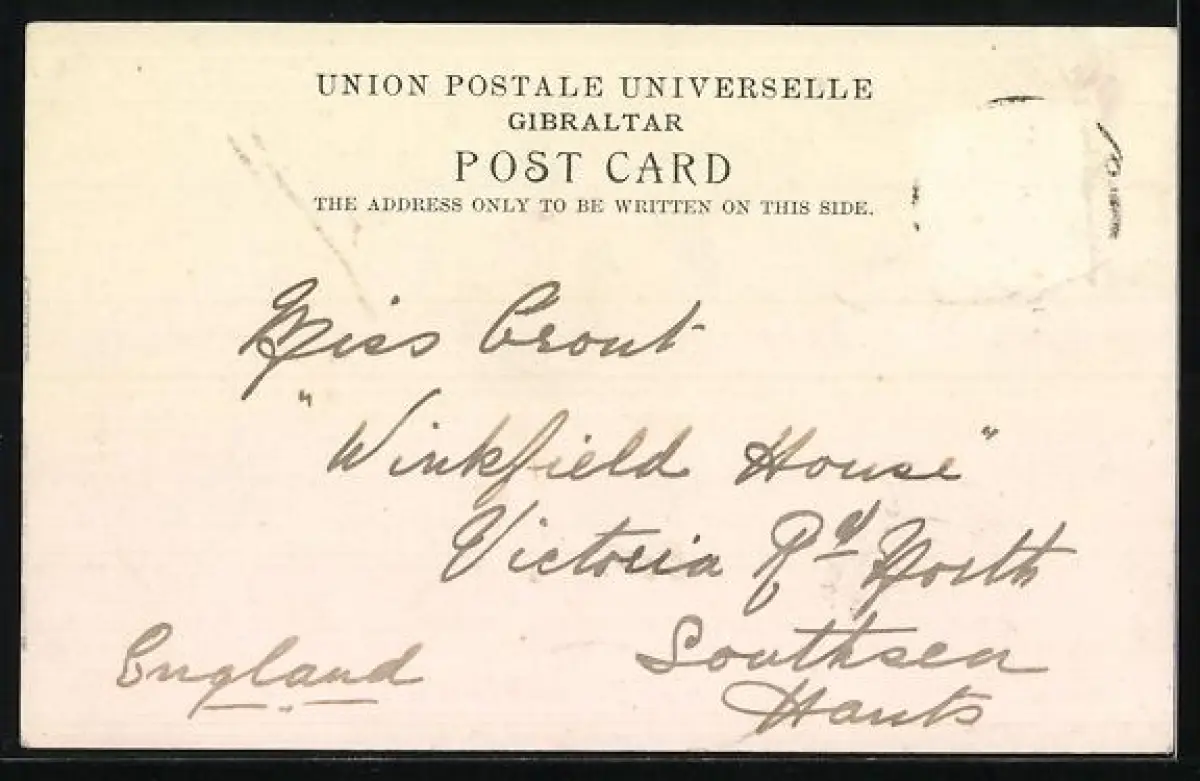 UNION POSTALE UNIVERSELLE
GIBRALTAR
POST CARD
THE ADDRESS ONLY TO BE WRITTEN ON THIS SIDE.
Miss Crout
"Winkfield House"
Victoria Rd North
Southsea
Hants
England